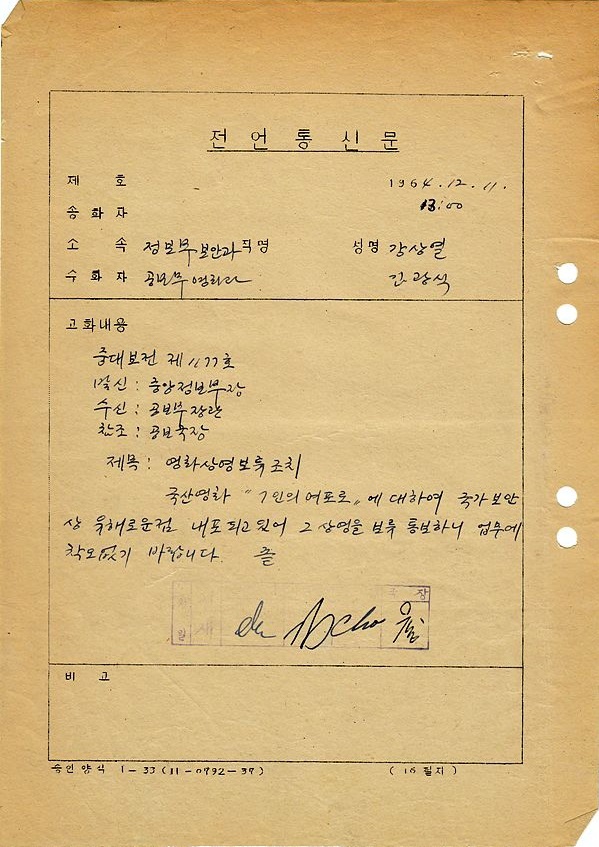 전언통신문
제 호 1964.12.11.
송화자 13:00
소 속 정보부보안과 직명 성명 강상열
수화자 공보부영화과 김광식
고화내용
중대보전 제1177호
발신 : 중앙정보부장
수신 : 공보부장관
참조 : 공보국장
제목 : 영화상영보류조치
국산영화 "7인의 여포로"에 대하여 국가보안
상 유해로운점 내포되고 있어 그 상영을 보류 통보하니 업무에
착오없기 바랍니다. 끝
국 장
비 고
승인양식 1-33 (11-0792-37) (16절지)